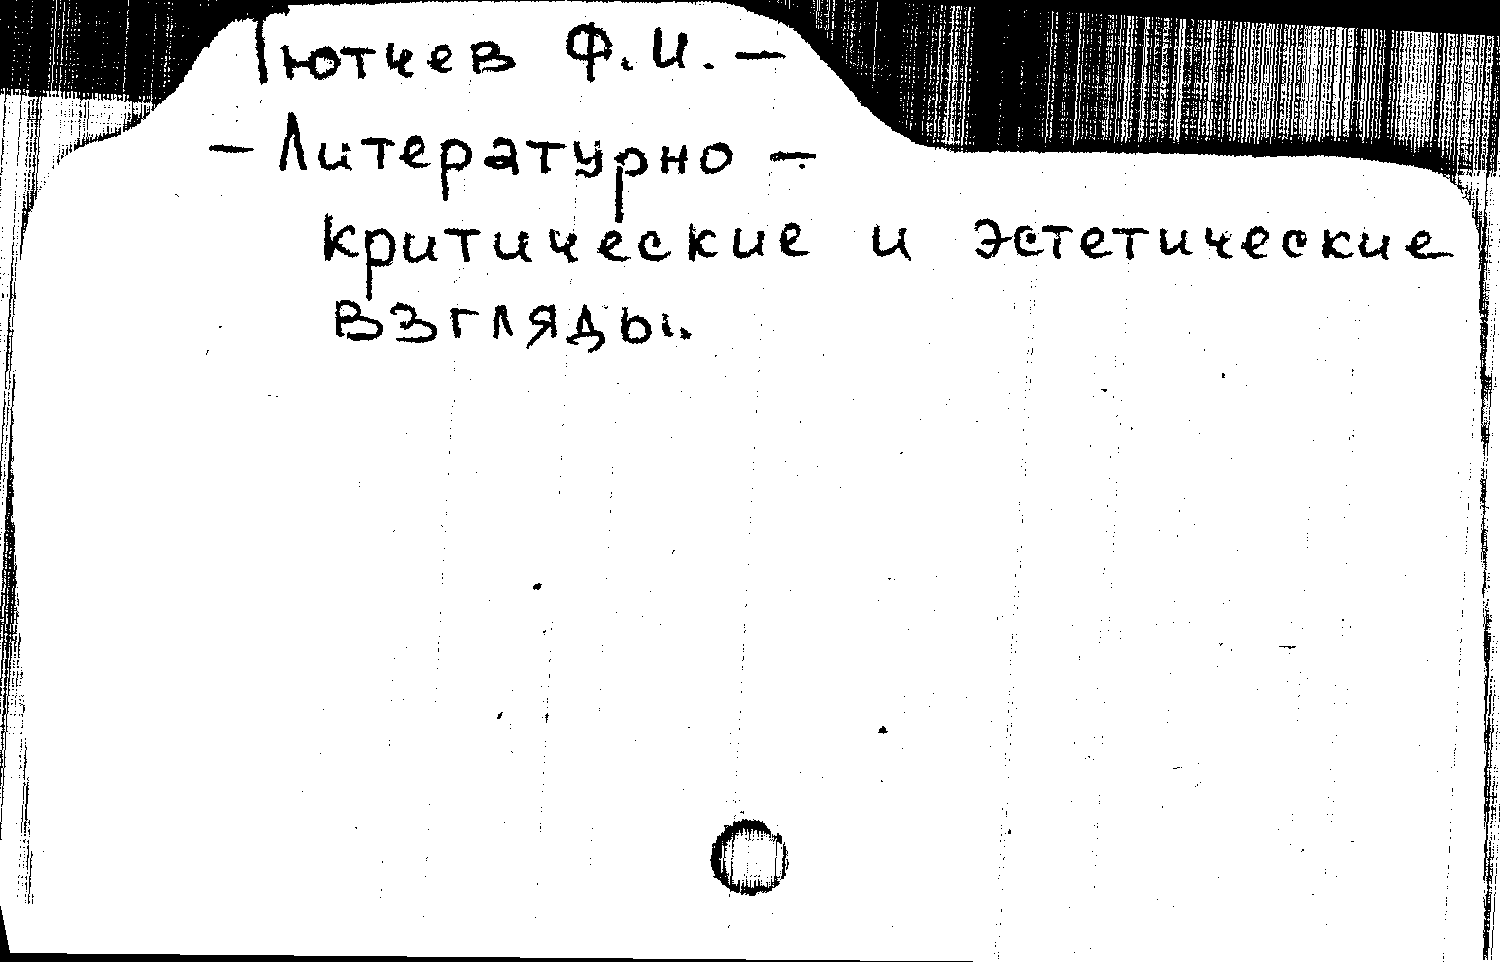 Тютчев Ф.И. —
— Литературно —
критические и эстетические
взгляды.